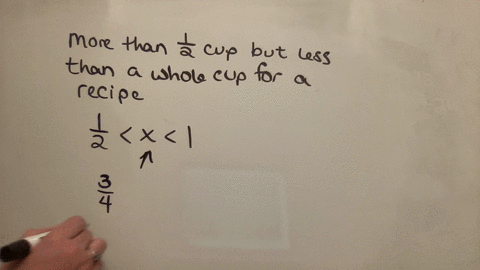 More than 1/2 cup but less
than a whole cup for a
recipe
1/2 < x < 1
3/4